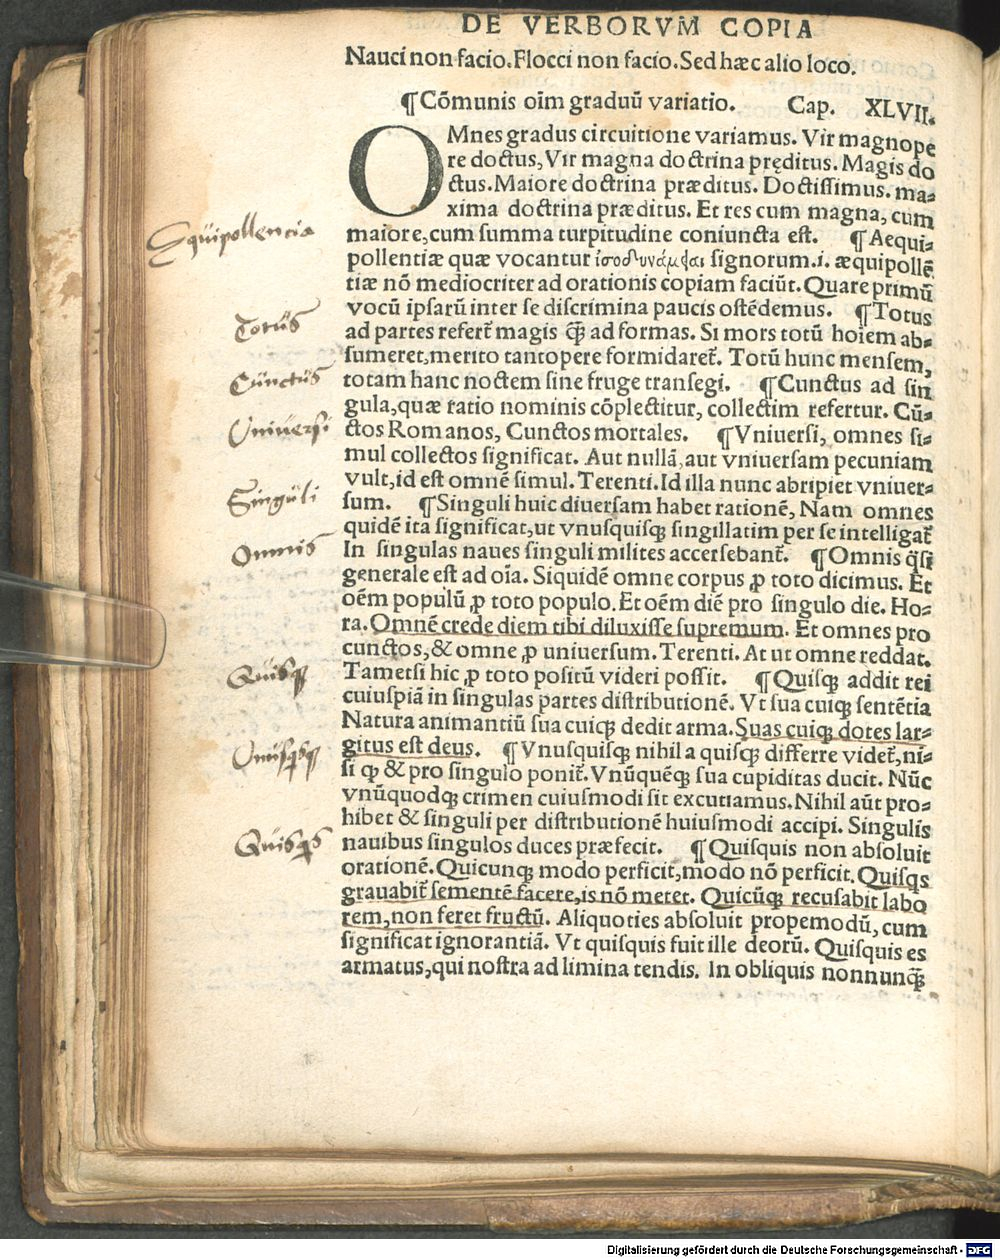 DE VERBORVM COPIA
Nauci non facio. Flocci non facio. Sed hæc alio loco.
¶Cõmunis oĩm graduũ variatio. Cap. XLVII.
OMnes gradus circuitione variamus. Vir magnope
re doctus, Vir magna doctrina pręditus. Magis do
ctus. Maiore doctrina præditus. Doctissimus. ma-
xima doctrina præditus. Et res cum magna, cum
maiore, cum summa turpitudine coniuncta est. ¶Aequi-
Equipollencia
pollentiæ quæ vocantur ἰσοδυνάμιαι signorum .i. æquipollẽ
tiæ nõ mediocriter ad orationis copiam faciũt. Quare primũ
vocũ ipsarũ inter se discrimina paucis ostẽdemus. ¶Totus
Totus
ad partes refert᷑ magis q̃ ad formas. Si mors totũ hoĩem ab-
sumeret, merito tantopere formidaret᷑. Totũ hunc mensem,
totam hanc noctem sine fruge transegi. ¶Cunctus ad sin
Cunctus
gula, quæ ratio nominis cõplectitur, collectim refertur. Cũ-
ctos Romanos, Cunctos mortales. ¶Vniuersi, omnes si-
Vniuersi
mul collectos significat. Aut nullã, aut vniuersam pecuniam
vult, id est omnẽ simul. Terenti. Id illa nunc abripiet vniuer-
sum. ¶Singuli huic diuersam habet rationẽ, Nam omnes
Singuli
quidẽ ita significat, ut vnusquisq; singillatim per se intelligat᷑
In singulas naues singuli milites accersebant᷑. ¶Omnis q̃si
Omnis
generale est ad oĩa. Siquidẽ omne corpus ꝓ toto dicimus. Et
oẽm populũ ꝓ toto populo. Et oẽm diẽ pro singulo die. Ho-
ra. Omnẽ crede diem tibi diluxisse supremum. Et omnes pro
cunctos, & omne ꝓ universum. Terenti. At ut omne reddat.
Tametsi hic ꝓ toto positũ videri possit. ¶Quisq; addit rei
Quisq;
cuiuspiã in singulas partes distributionẽ. Vt sua cuiq; sentẽtia
Natura animantiũ sua cuiq; dedit arma. Suas cuiq; dotes lar-
gitus est deus. ¶Vnusquisq; nihil a quisq; differre videt᷑, ni-
Vnusqsq;
si ꝙ & pro singulo ponit᷑. Vnũquẽq; sua cupiditas ducit. Nũc
vnũquodq; crimen cuiusmodi sit excutiamus. Nihil aũt pro-
hibet & singuli per distributionẽ huiusmodi accipi. Singulis
nauibus singulos duces præfecit. ¶Quisquis non absoluit
Quisqs
orationẽ. Quicunq; modo perficit, modo nõ perficit. Quisqs
grauabit᷑ sementẽ facere, is nõ metet. Quicũq; recusabit labo
rem, non feret fructũ. Aliquoties absoluit propemodũ, cum
significat ignorantiã. Vt quisquis fuit ille deorũ. Quisquis es
armatus, qui nostra ad limina tendis. In obliquis nonnunq̃
Digitalisierung gefördert durch die Deutsche Forschungsgemeinschaft - DFG